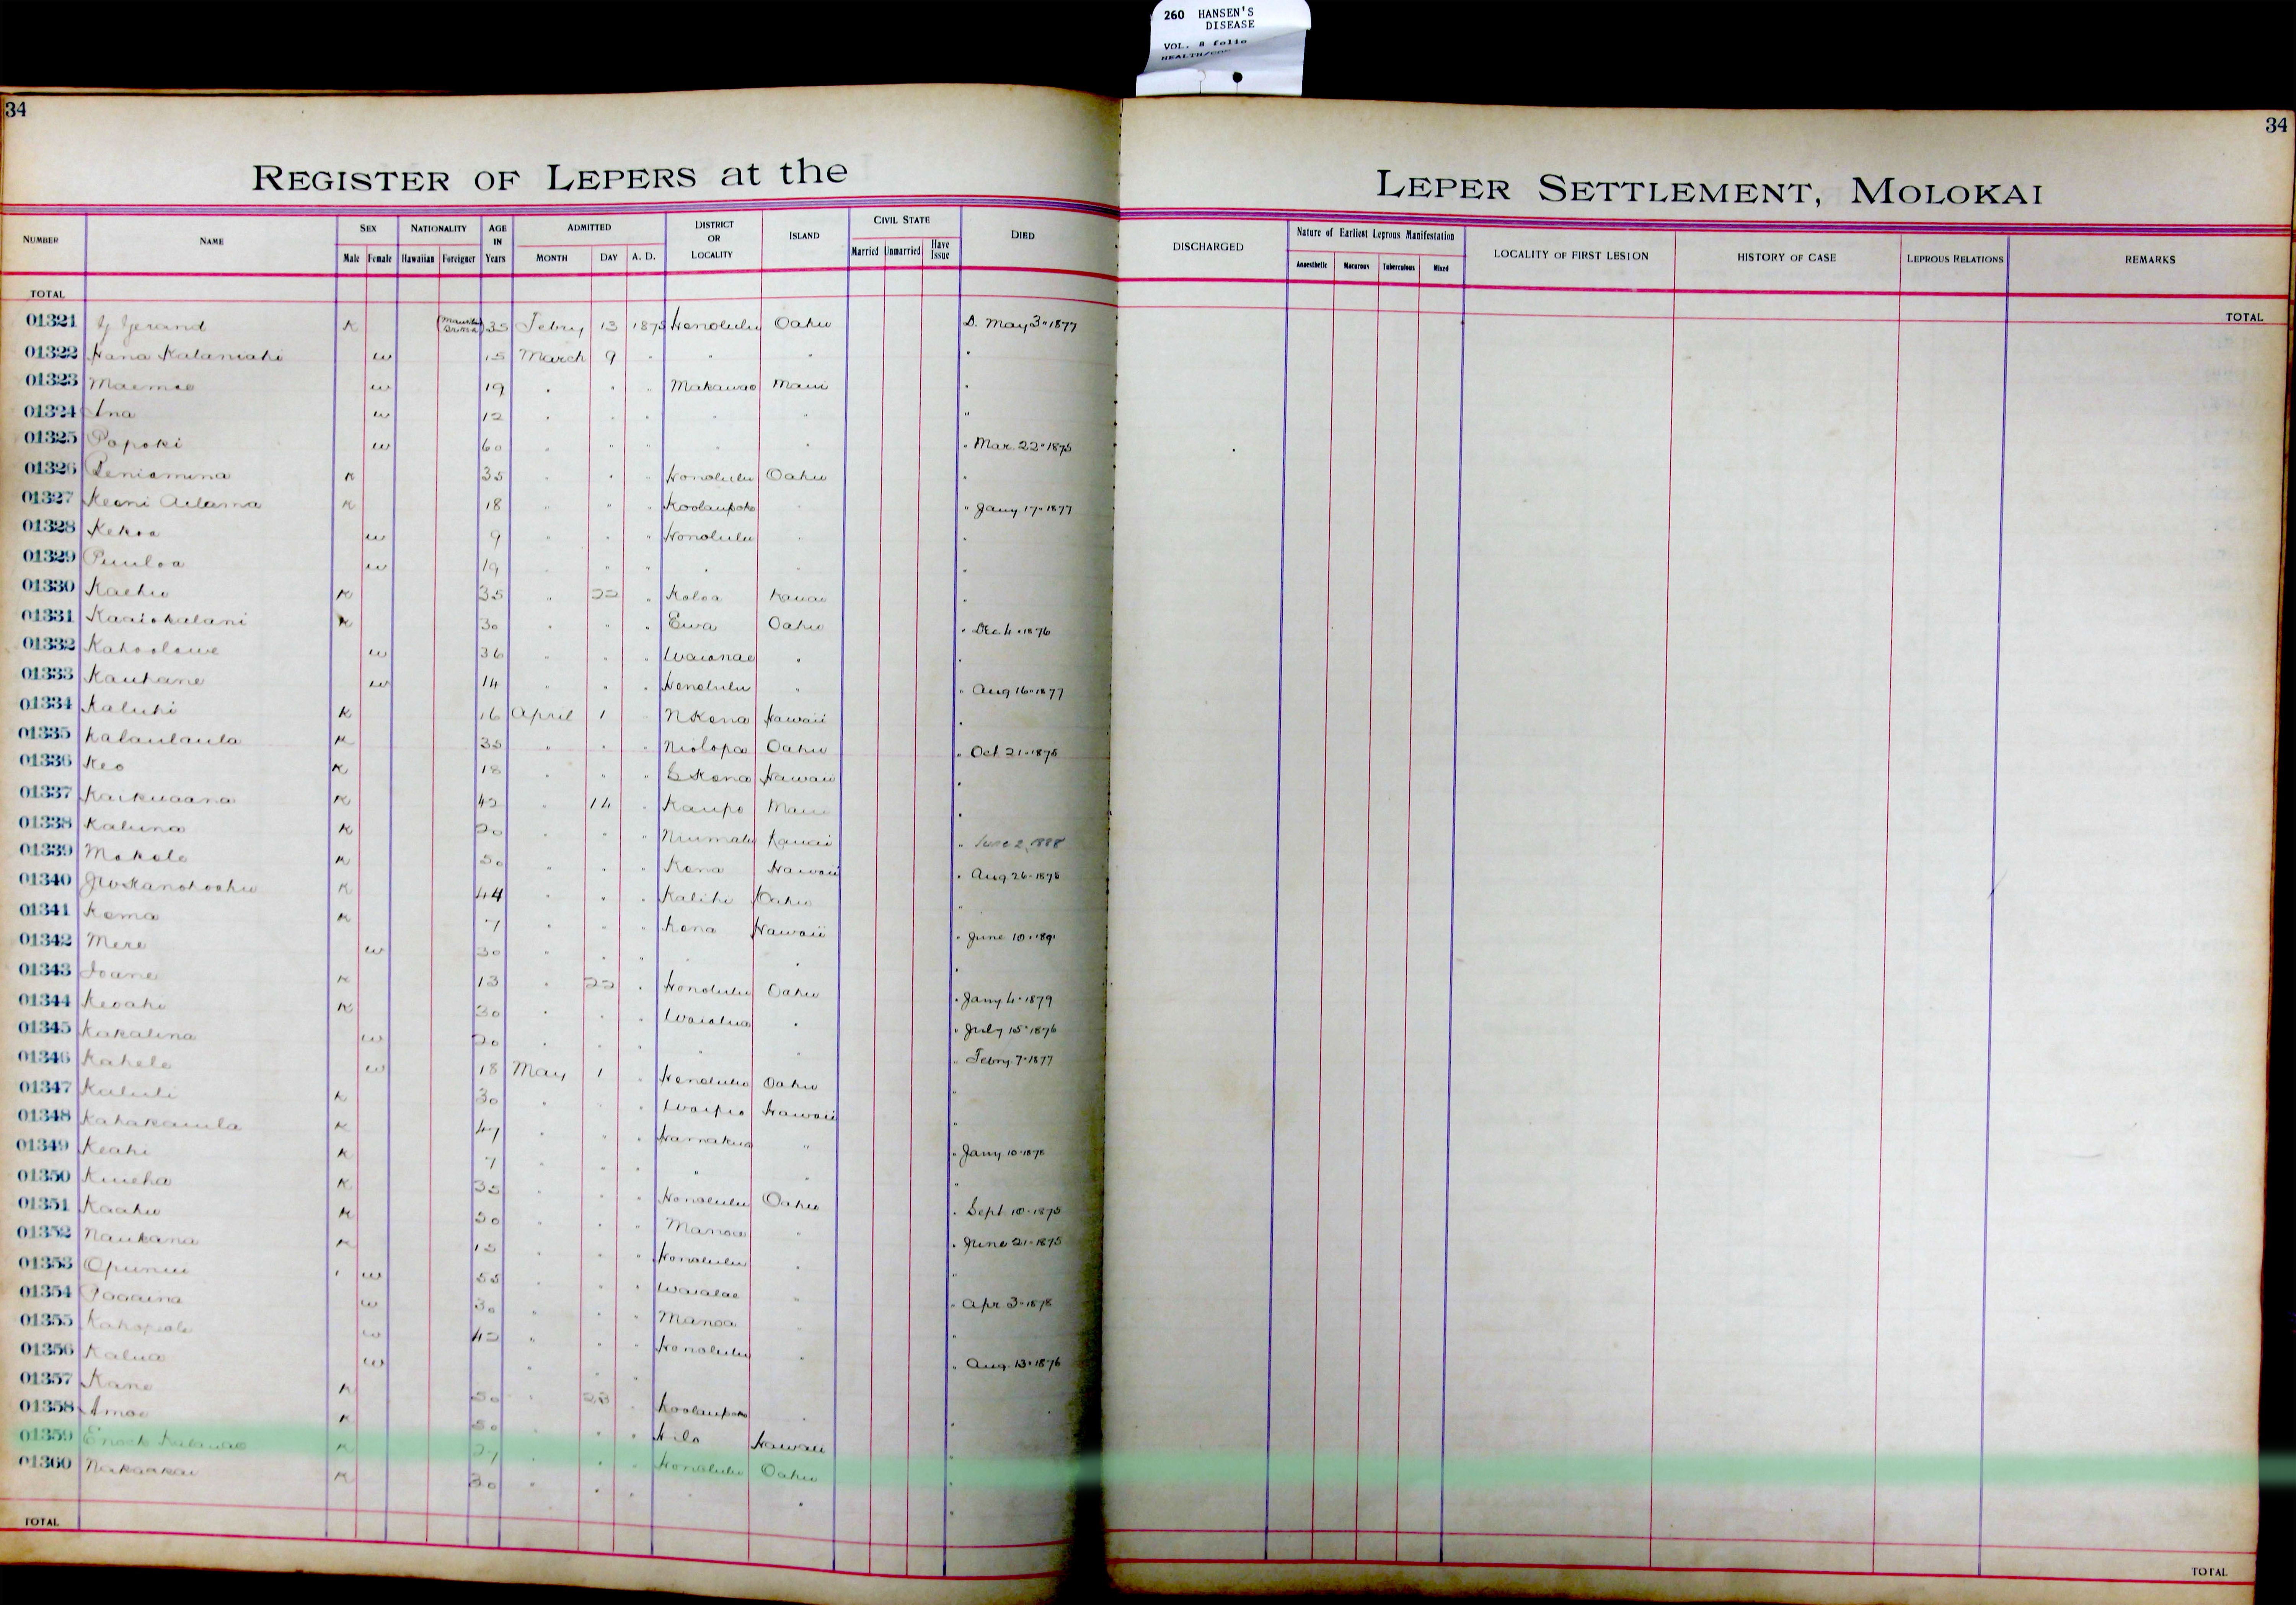 260 HANSEN'S
DISEASE
VOL. 8 folio
34
34
REGISTER OF LEPERS at the
LEPER SETTLEMENT, MOLOKAI
NUMBER NAME SEX Male Female NATIONALITY Hawaiian Foreigner AGE IN Years ADMITTED MONTH DAY A. D. DISTRICT OR LOCALITY ISLAND CIVIL STATE Married Unmarried Have Issue DIED
DISCHARGED Nature of Earliest Leprous Manifestation Anaesthetic Macurous Tuberculous Mixed LOCALITY OF FIRST LESION HISTORY OF CASE LEPROUS RELATIONS REMARKS
TOTAL
TOTAL
01321 Gerand K 35 Febry 13 1875 Honolulu Oahu D. May 3" 1877
01322 Hana Kalaniahi w 15 March 9 " " " "
01323 Maemae w 19 " " " Makawao Maui "
01324 Ana w 12 " " " " " "
01325 Popoki w 60 " " " " " " Mar. 22" 1875
01326 Peniamina K 35 " " " Honolulu Oahu "
01327 Keoni Adama K 18 " " " Koolaupoko " " Jany 17" 1877
01328 Kekoa w 9 " " " Honolulu " "
01329 Puuloa w 19 " " " " " "
01330 Kaehu K 35 " 22 " Koloa Kauai "
01331 Kaaiokalani K 30 " " " Ewa Oahu " Dec 4" 1876
01332 Kahoolawe w 36 " " " Waianae " "
01333 Kauhane w 14 " " " Honolulu " " Aug 16" 1877
01334 Kaluhi K 16 April 1 " N Kona Hawaii "
01335 Kalaulaula K 35 " " " Niolopa Oahu " Oct 21" 1875
01336 Keo K 18 " " " S Kona Hawaii "
01337 Kaikuaana K 42 " 14 " Kaupo Maui "
01338 Kaluna K 20 " " " Niumalu Kauai " June 2, 1888
01339 Makole K 50 " " " Kona Hawaii " Aug 26" 1878
01340 K 44 " " " Kalihi Oahu "
01341 Koma K 7 " " " Kona Hawaii " June 10" 1891
01342 Mere w 30 " " " " " "
01343 Ioane K 13 " 22 " Honolulu Oahu " Jany 4" 1879
01344 Keoahi K 30 " " " Waialua " " July 15" 1876
01345 Kakalina w 20 " " " " " " Febry. 7" 1877
01346 Kahele w 18 May 1 " Honolulu Oahu "
01347 Kaluli K 30 " " " Waipio Hawaii "
01348 Kahakauila K 47 " " " Hamakua " " Jany 10" 1878
01349 Keahi K 7 " " " " " "
01350 Kuieha K 35 " " " Honolulu Oahu " Sept 10" 1875
01351 Kaahu K 50 " " " Manoa " " June 21" 1875
01352 Naukana K 15 " " " Honolulu " "
01353 Opunui w 55 " " " Waialae " " Apr 3" 1878
01354 Paaaina w 30 " " " Manoa " "
01355 w 42 " " " Honolulu " " Aug. 13" 1876
01356 Kalua w " " "
01357 Kane K 50 " 28 " Koolaupoko " "
01358 Amoe K 50 " " " Hilo Hawaii "
01359 Enoch K 27 " " " Honolulu Oahu "
01360 Nakaakai K 30 " " " " " "
TOTAL
TOTAL